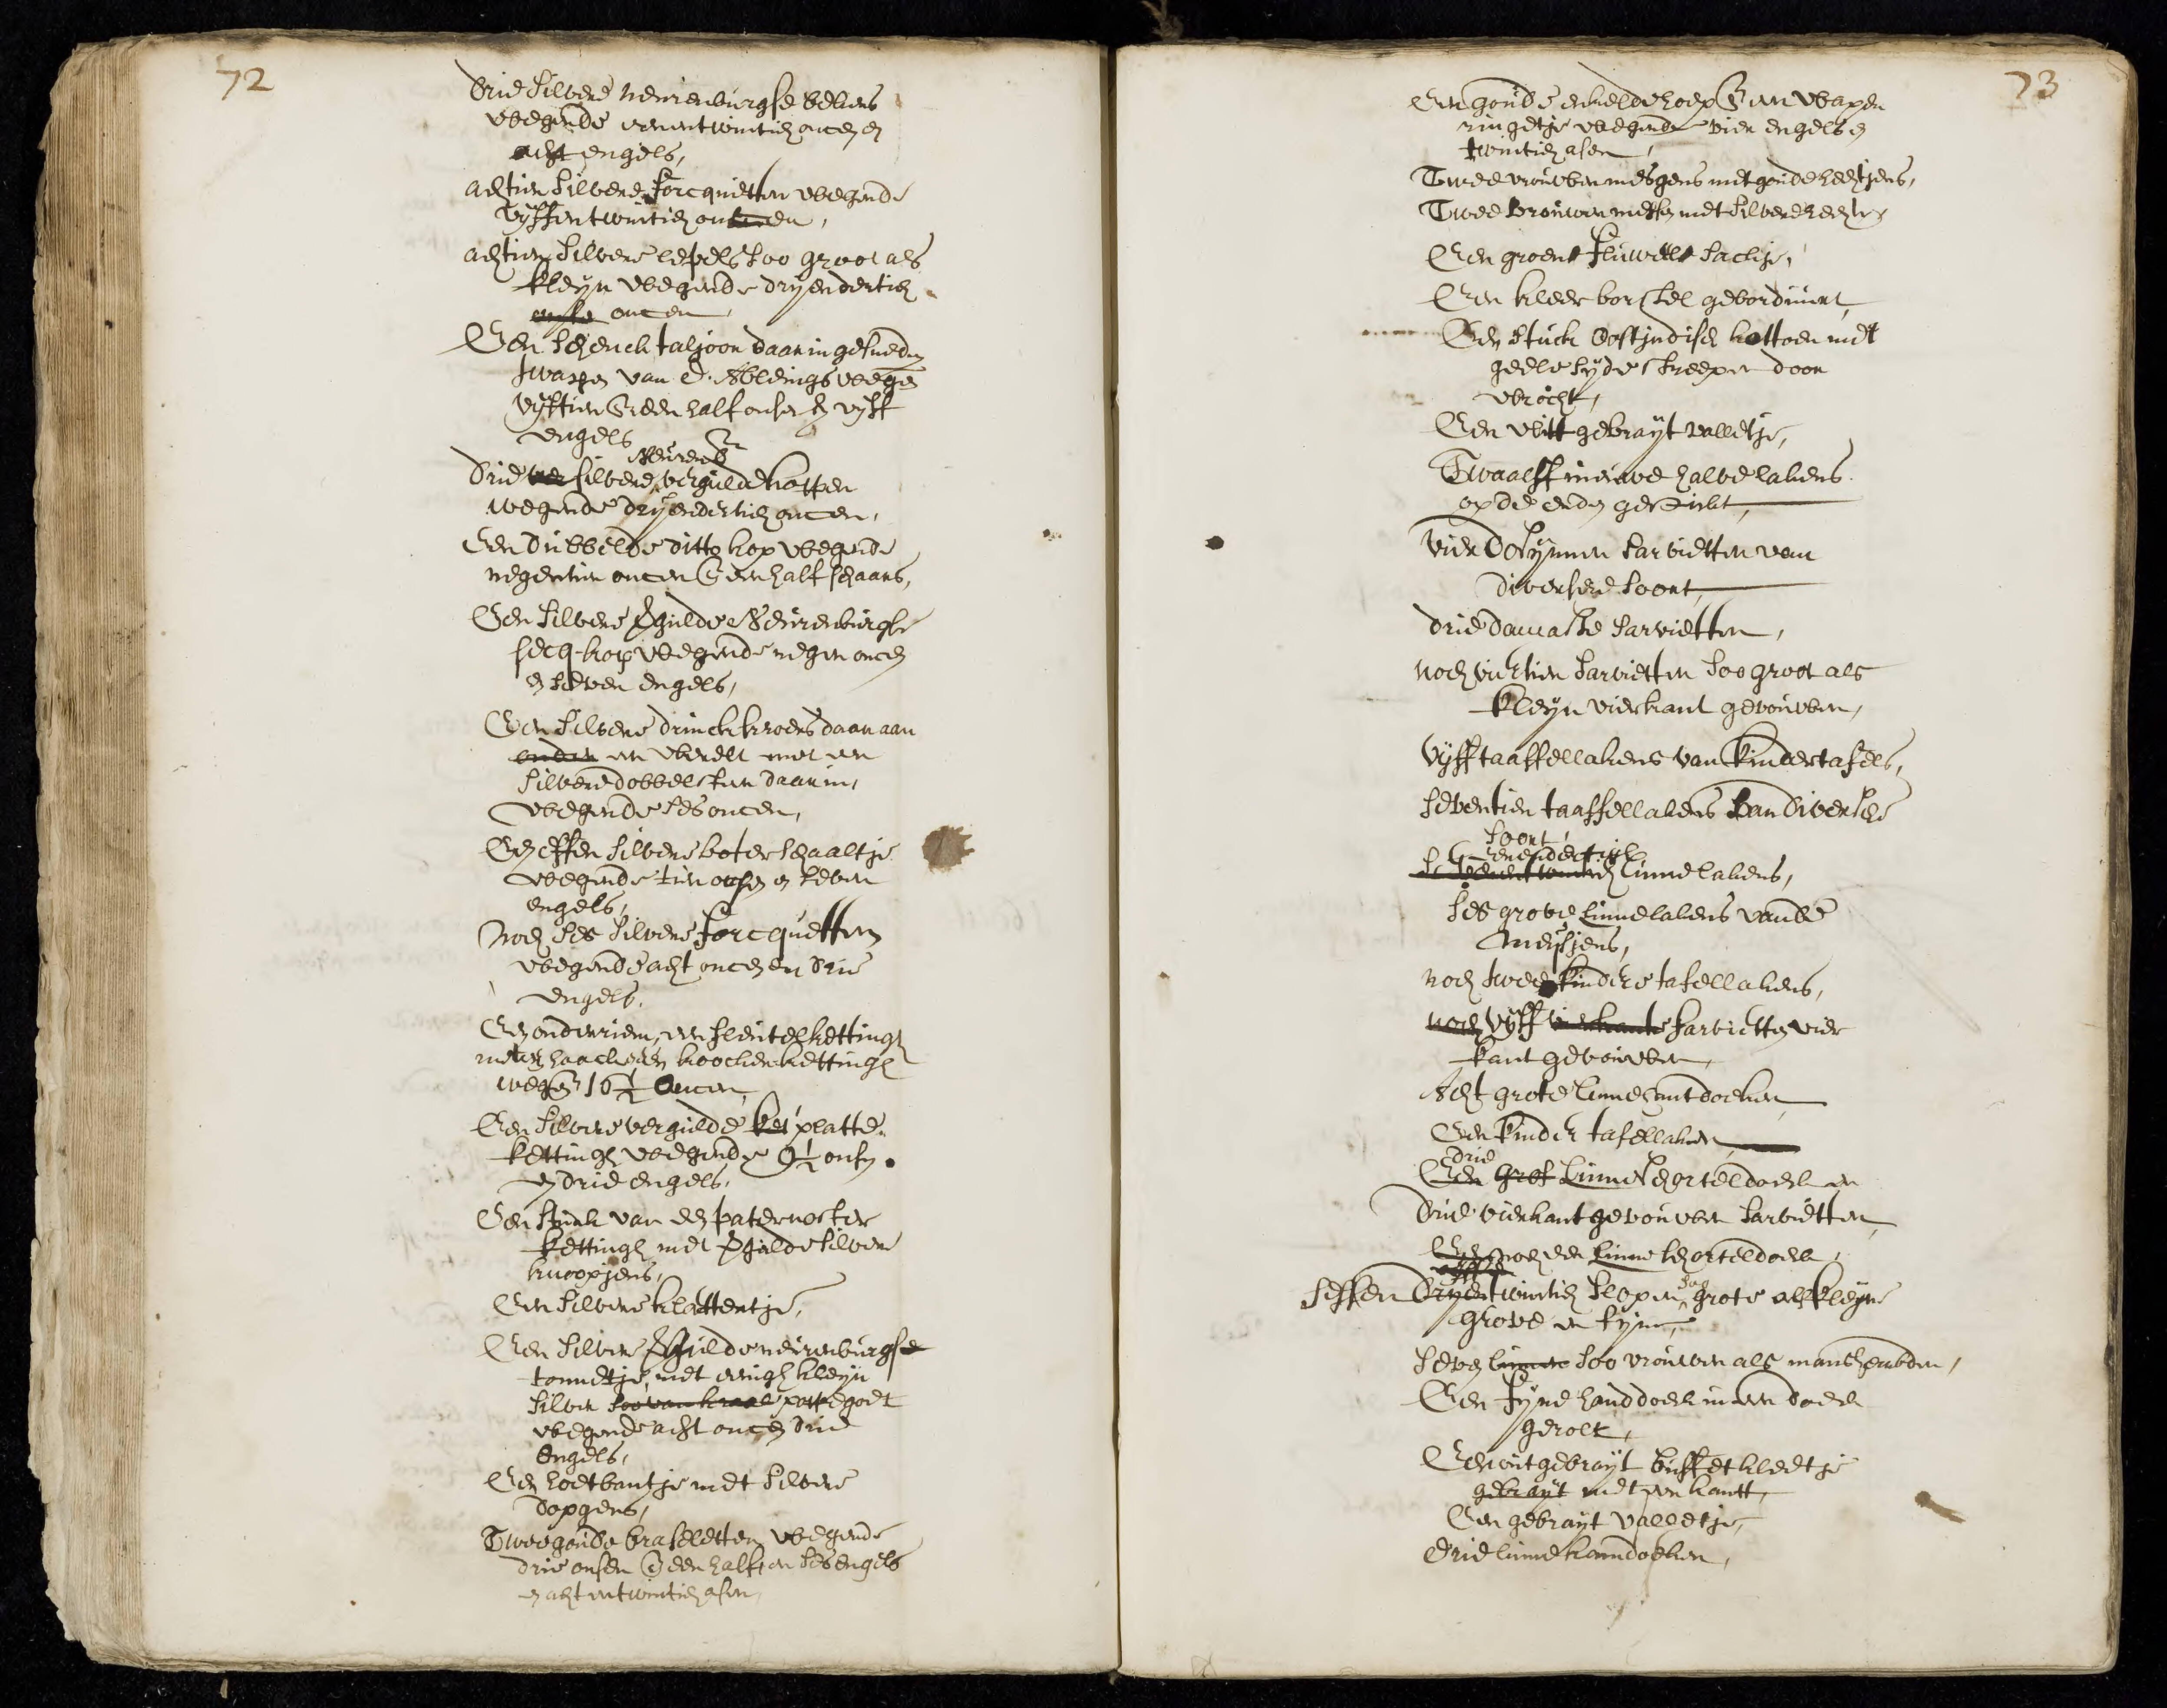 72
Drie silvere neurenburgse bekers
wegende eenentwintich oncen en
acht engels,
achtien silvere forcquetten wegende
vyffentwintich oncen,
achtien silvere lepels soo groot als
kleyn wegende dryendertich
onse oncen
Een schenck taljoor daar in gesneden
twapen van
vyftien & een half onsen en vyff
engels
Neurenb
Drie ver silvere vergulde koppen
wegende dryendertich oncen,
Een dubbelde ditto kop wegende
negentien oncen & een half schaars,
Een silvere vergulde Neurenburgse
kop wegende negen oncen
en seven engels,
Een silvere drinckkroes daar aan
onder een werelt met een
silvere dobbelsteen daar in,
wegende ses oncen,
Een effen silvere boter schaaltje
wegende tien onsen en seven
engels,
Noch ses silvere forcquetten
wegende acht oncen en drie
engels,
Een onderriem, een sleutelkettingh
met een haack, een koockerkettingh
weg 16½ oncen,
Een silvere vergulde platte
kettingh wegende 9½ onsen
en drie engels,
Een stuck van een paternoster
kettingh met vergulde silvere
knoopjens,
Een silvere klattertje,
Een silvere vergulde neurenburgse
tonnetje, met eenigh kleyn
silver poppegoet
wegende acht oncen drie
Engels,
Een hoetbantje met silvere
dopgens,
Twee goude braseletten wegende
drie onsen & een half en ses engels
en achtentwintich asen,
73
Een goude enkelde hoep & een wapen
ringetje wegende vier engels en
twintich asen,
Twee vrouwen mesgens met goude hechtjens,
Twee vrouwen messen met silvere hechten
Een groene fluwele sackje,
Een kleer borstel gebordiuert,
Een stuck Oostjndisch kattoen met
geele syde streepen door
wrocht,
Een witt gebrayt valletje,
Twaalff nieuwe halve lakens
op de enden gestickt,
Vier dosynnen sarvietten van
diversere soort,
drie damaste sarvietten,
noch viertien sarvietten soo groot als
kleyn vierkant gevouwen,
Vyff taaffellakens van kindertafels,
seventien taaffellakens van diversche
soort,
eenendertich
sevenentwintich linne lakens,
ses grove linne lakens van de
meysjens,
noch twee kindere tafellakens,
noch vyff vierkante sarvietten vier
kant gevouwen,
Acht grote linne hantdoeken,
Een kinder tafellaken,
drie
Een grof linne schorteldoeck en
drie vierkant gevouwen sarvietten,
Een noch een linne schorteldoeck,
sessen Dryentwintich slopen soo grote als kleyne
grove en fyne,
seven linnen soo vrouwen als manshembden,
Een fyne handdoeck in een doeck
gerolt,
Een wit gebrayt buffetkleetje
gebrayt met een kantt,
Een gebrayt valletje,
Drie linne kamdoeken,